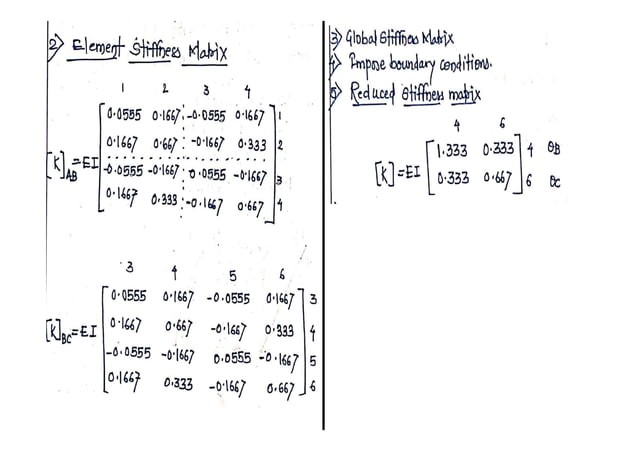 2> Element Stiffness Matrix
1 2 3 4
0.0555 0.1667 -0.0555 0.1667 1
0.1667 0.667 -0.1667 0.333 2
[K]AB = EI
-0.0555 -0.1667 0.0555 -0.1667 3
0.1667 0.333 -0.1667 0.667 4
3 4 5 6
0.0555 0.1667 -0.0555 0.1667 3
0.1667 0.667 -0.1667 0.333 4
[K]BC = EI
-0.0555 -0.1667 0.0555 -0.1667 5
0.1667 0.333 -0.1667 0.667 6
3> Global Stiffness Matrix
4> Impose boundary conditions.
5> Reduced Stiffness matrix
4 6
1.333 0.333 4 θB
[K] = EI
0.333 0.667 6 θC